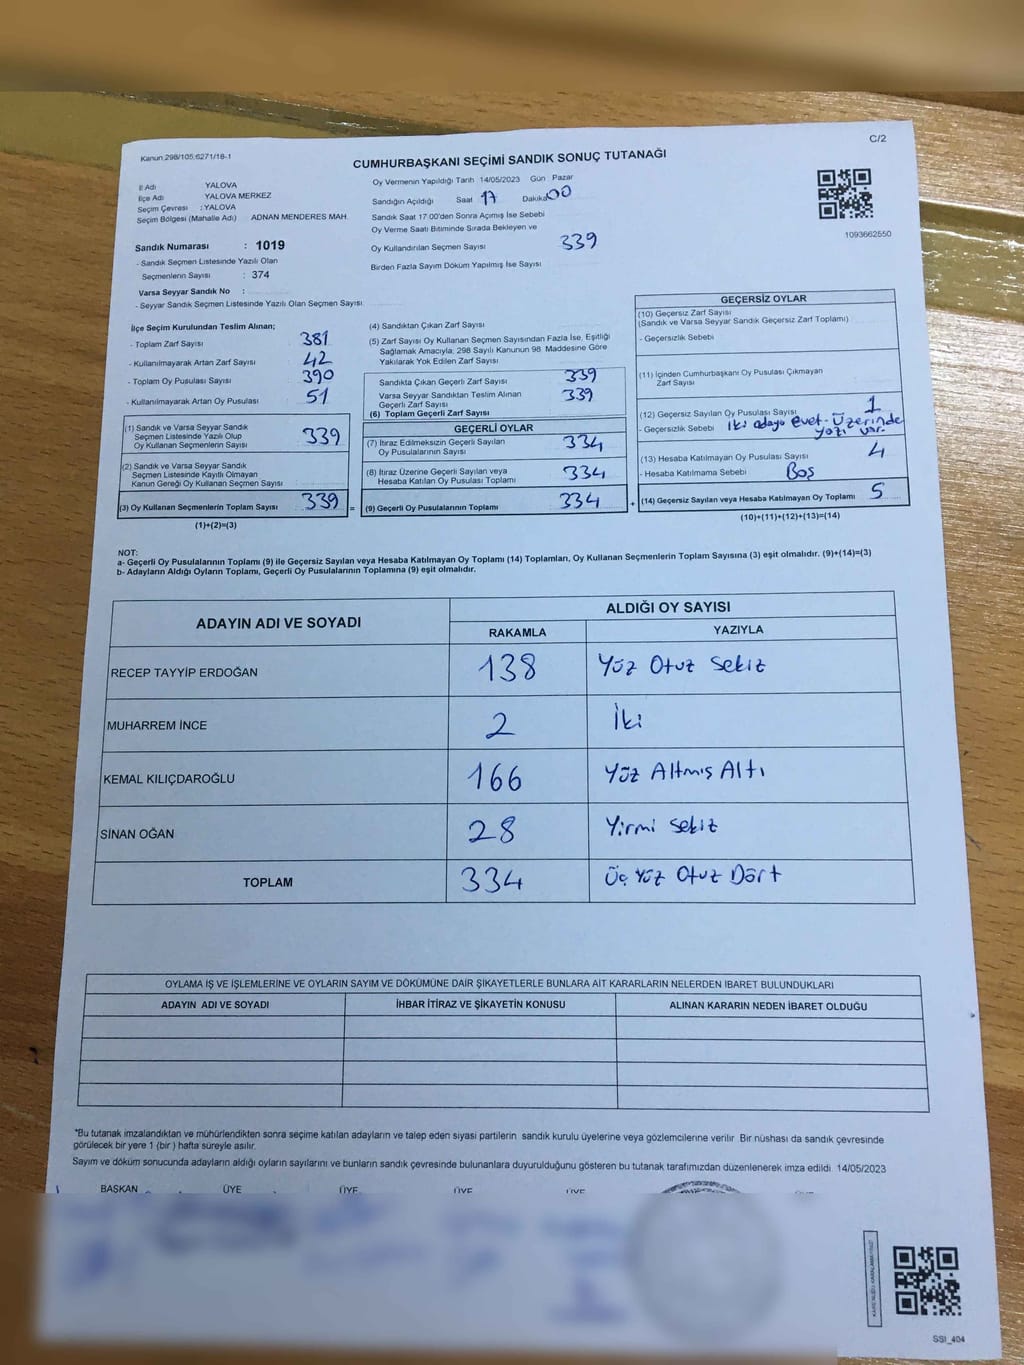 C/2
Kanun 298/105,6271/18-1
CUMHURBAŞKANI SEÇİMİ SANDIK SONUÇ TUTANAĞI
İl Adı YALOVA
İlçe Adı YALOVA MERKEZ
Seçim Çevresi : YALOVA
Seçim Bölgesi (Mahalle Adı) ADNAN MENDERES MAH.
Sandık Numarası : 1019
- Sandık Seçmen Listesinde Yazılı Olan
Seçmenlerin Sayısı : 374
Varsa Seyyar Sandık No :
- Seyyar Sandık Seçmen Listesinde Yazılı Olan Seçmen Sayısı
Oy Vermenin Yapıldığı Tarih 14/05/2023 Gün Pazar
Sandığın Açıldığı Saat 17 Dakika 00
Sandık Saat 17:00'den Sonra Açımış İse Sebebi
Oy Verme Saati Bitiminde Sırada Bekleyen ve
Oy Kullandırılan Seçmen Sayısı 339
Birden Fazla Sayım Döküm Yapılmış İse Sayısı
1093662550
İlçe Seçim Kurulundan Teslim Alınan;
- Toplam Zarf Sayısı 381
- Kullanılmayarak Artan Zarf Sayısı 42
- Toplam Oy Pusulası Sayısı 390
- Kullanılmayarak Artan Oy Pusulası 51
(1) Sandık ve Varsa Seyyar Sandık
Seçmen Listesinde Yazılı Olup
Oy Kullanan Seçmenlerin Sayısı 339
(2) Sandık ve Varsa Seyyar Sandık
Seçmen Listesinde Kayıtlı Olmayan
Kanun Gereği Oy Kullanan Seçmen Sayısı
(3) Oy Kullanan Seçmenlerin Toplam Sayısı 339 =
(1)+(2)=(3)
(4) Sandıktan Çıkan Zarf Sayısı
(5) Zarf Sayısı Oy Kullanan Seçmen Sayısından Fazla İse, Eşitliği
Sağlamak Amacıyla; 298 Sayılı Kanunun 98. Maddesine Göre
Yakılarak Yok Edilen Zarf Sayısı
Sandıkta Çıkan Geçerli Zarf Sayısı 339
Varsa Seyyar Sandıktan Teslim Alınan
Geçerli Zarf Sayısı 339
(6) Toplam Geçerli Zarf Sayısı
GEÇERLİ OYLAR
(7) İtiraz Edilmeksizin Geçerli Sayılan
Oy Pusulalarının Sayısı 334
(8) İtiraz Üzerine Geçerli Sayılan veya
Hesaba Katılan Oy Pusulası Toplamı 334
(9) Geçerli Oy Pusulalarının Toplamı 334 +
GEÇERSİZ OYLAR
(10) Geçersiz Zarf Sayısı
(Sandık ve Varsa Seyyar Sandık Geçersiz Zarf Toplamı)
- Geçersizlik Sebebi
(11) İçinden Cumhurbaşkanı Oy Pusulası Çıkmayan
Zarf Sayısı
(12) Geçersiz Sayılan Oy Pusulası Sayısı 1
- Geçersizlik Sebebi İki adaya evet - Üzerinde
yazı var.
(13) Hesaba Katılmayan Oy Pusulası Sayısı 4
- Hesaba Katılmama Sebebi Boş
(14) Geçersiz Sayılan veya Hesaba Katılmayan Oy Toplamı 5
(10)+(11)+(12)+(13)=(14)
NOT:
a- Geçerli Oy Pusulalarının Toplamı (9) ile Geçersiz Sayılan veya Hesaba Katılmayan Oy Toplamı (14) Toplamları, Oy Kullanan Seçmenlerin Toplam Sayısına (3) eşit olmalıdır. (9)+(14)=(3)
b- Adayların Aldığı Oyların Toplamı, Geçerli Oy Pusulalarının Toplamına (9) eşit olmalıdır.
ADAYIN ADI VE SOYADI ALDIĞI OY SAYISI
RAKAMLA YAZIYLA
RECEP TAYYİP ERDOĞAN 138 Yüz Otuz Sekiz
MUHARREM İNCE 2 İki
KEMAL KILIÇDAROĞLU 166 Yüz Altmış Altı
SİNAN OĞAN 28 Yirmi Sekiz
TOPLAM 334 Üç Yüz Otuz Dört
OYLAMA İŞ VE İŞLEMLERİNE VE OYLARIN SAYIM VE DÖKÜMÜNE DAİR ŞİKAYETLERLE BUNLARA AİT KARARLARIN NELERDEN İBARET BULUNDUKLARI
ADAYIN ADI VE SOYADI İHBAR İTİRAZ VE ŞİKAYETİN KONUSU ALINAN KARARIN NEDEN İBARET OLDUĞU
*Bu tutanak imzalandıktan ve mühürlendikten sonra seçime katılan adayların ve talep eden siyasi partilerin sandık kurulu üyelerine veya gözlemcilerine verilir. Bir nüshası da sandık çevresinde
görülecek bir yere 1 (bir) hafta süreyle asılır.
Sayım ve döküm sonucunda adayların aldığı oyların sayılarını ve bunların sandık çevresinde bulunanlara duyurulduğunu gösteren bu tutanak tarafımızdan düzenlenerek imza edildi. 14/05/2023
BAŞKAN ÜYE ÜYE ÜYE ÜYE
SSI_404